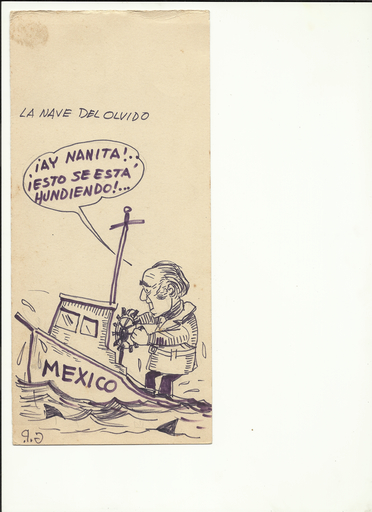 LA NAVE DEL OLVIDO
¡AY NANITA!..
¡ESTO SE ESTÁ
HUNDIENDO!...
MEXICO